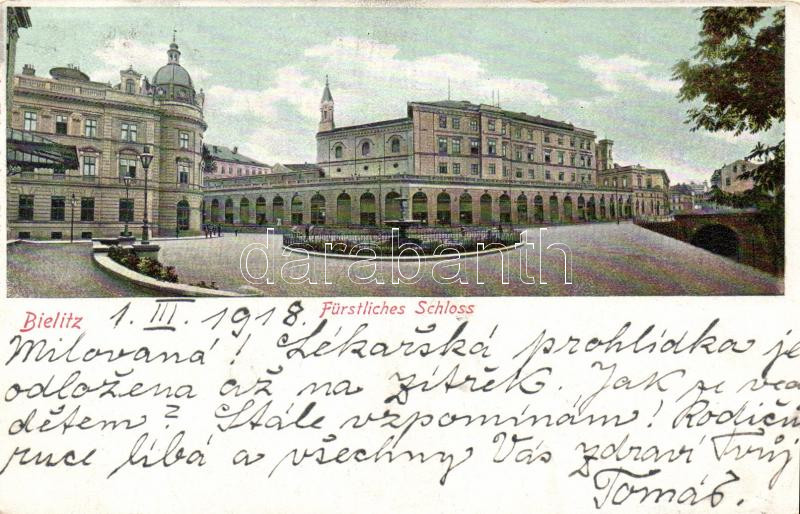 Bielitz
Fürstliches Schloss
1. III. 1918.
Milovaná! Lékařská prohlídka je
odložena až na zítřek. Jak se
dětem? Stále vzpomínám! Rodičů
ruce líbá a všechny Vás zdraví Tvůj
Tomáš.
darabanth